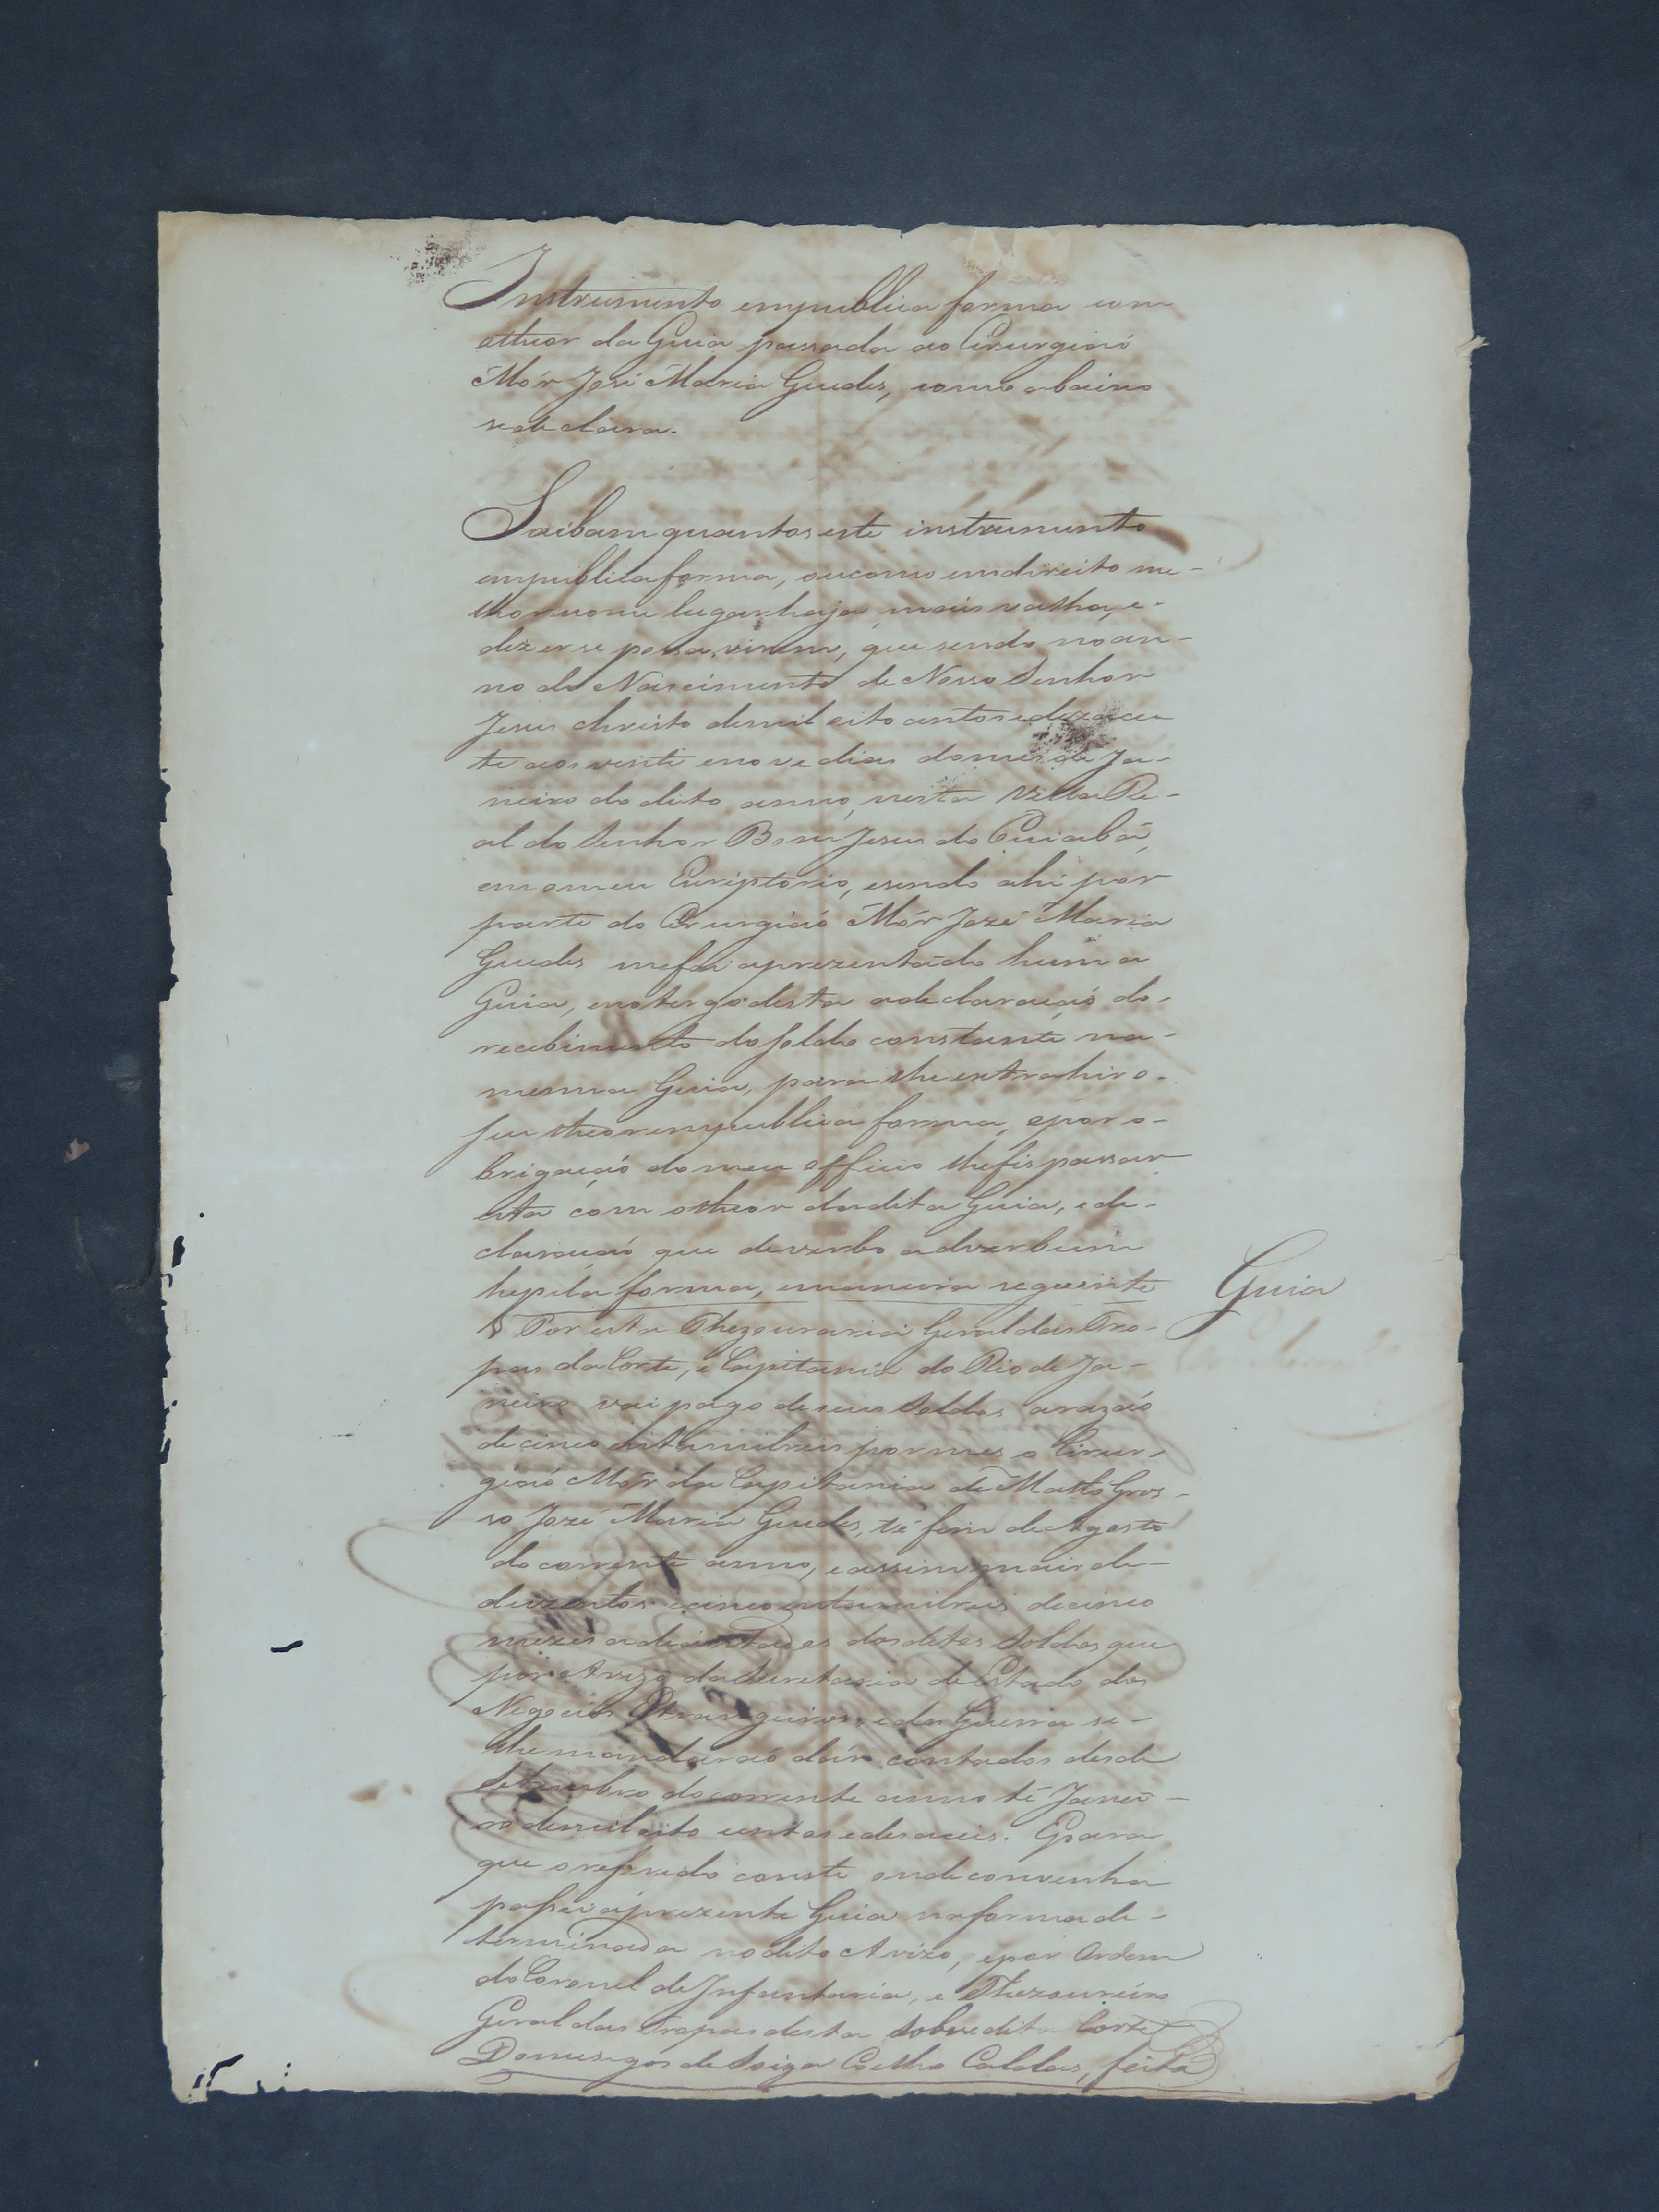 Instrumento empublica forma com
otheor da Guia passada ao Cirurgiaõ
Mór José Maria Guedes, como abaixo
sedeclara.
Saibam quantos este instrumento
empublica forma, oucomo emdireito me-
lhor nome lugar haja, mais valha, e-
dizerse possa, virem, que sendo no an-
no do Nascimento de Nosso Senhor
Jesus Christo demil oito centos e dezacei
te aos vinte enove dias domes de Ja-
neiro do dito anno, nesta Villa Re-
al do Senhor Bom Jesus do Cuiabá,
em omeu Escriptorio, esendo ahi por
parte do Cirurgiaõ Mór Jozé Maria
Guedes mefoi aprezentado huma
Guia, enotergo desta adeclaraçaõ do-
recebimento do soldo constante na-
mesma Guia, para lhe extrahir o-
seu theor empublica forma, epor o-
brigaçaõ do meu officio lhefis passar
esta com otheor dadita Guia, ede-
claraçaõ que deverbo adverbum
hepela forma, emaneira seguinte
Guia
Por esta Thezouraria Geral das Tro-
pas da Corte, e Capitania do Rio de Ja-
neiro vai pago deseus Soldos arazaõ
decincoentamilreis por mes o Cirur-
giaõ Mór da Capitania de Matto Gros-
so Jozé Maria Guedes, té fim de Agosto
do corrente anno, eassim mais de-
duzentos ecincoentamilreis decinco
mezes adiantados dosditos Soldos que
por Avizo da Secretaria de Estado dos
Negocios Estrangeiros, eda Guerra se-
lhemandaraõ dar contados desde
Setembro docorrente anno té Janei-
ro demil oito centos edesaceis. Epara
que oreferido conste onde convenha
passei aprezente Guia naforma de-
terminada nodito Avizo, epor Ordem
do Coronel de Infantaria, e Thezoureiro
Geral das Tropas desta Sobredita Corte
Domingos de Soiza Coelho Caldas, feita